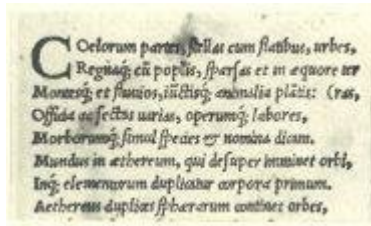 COelorum partes, stellas cum flatibus, urbes,
Regnaq́; cũ populis, sparsas et in æquore ter
Montesq́; et fluuios, iũctisq́; animalia plãtis: (ras,
Officia ac sectas uarias, operumq́; labores,
Morborumq́; simul species & nomina dicam.
Mundus in æthereum, qui desuper imminet orbi,
Inq́; elementorum duplicatur corpora primum.
Aethereus duplices sphærarum continet orbes,